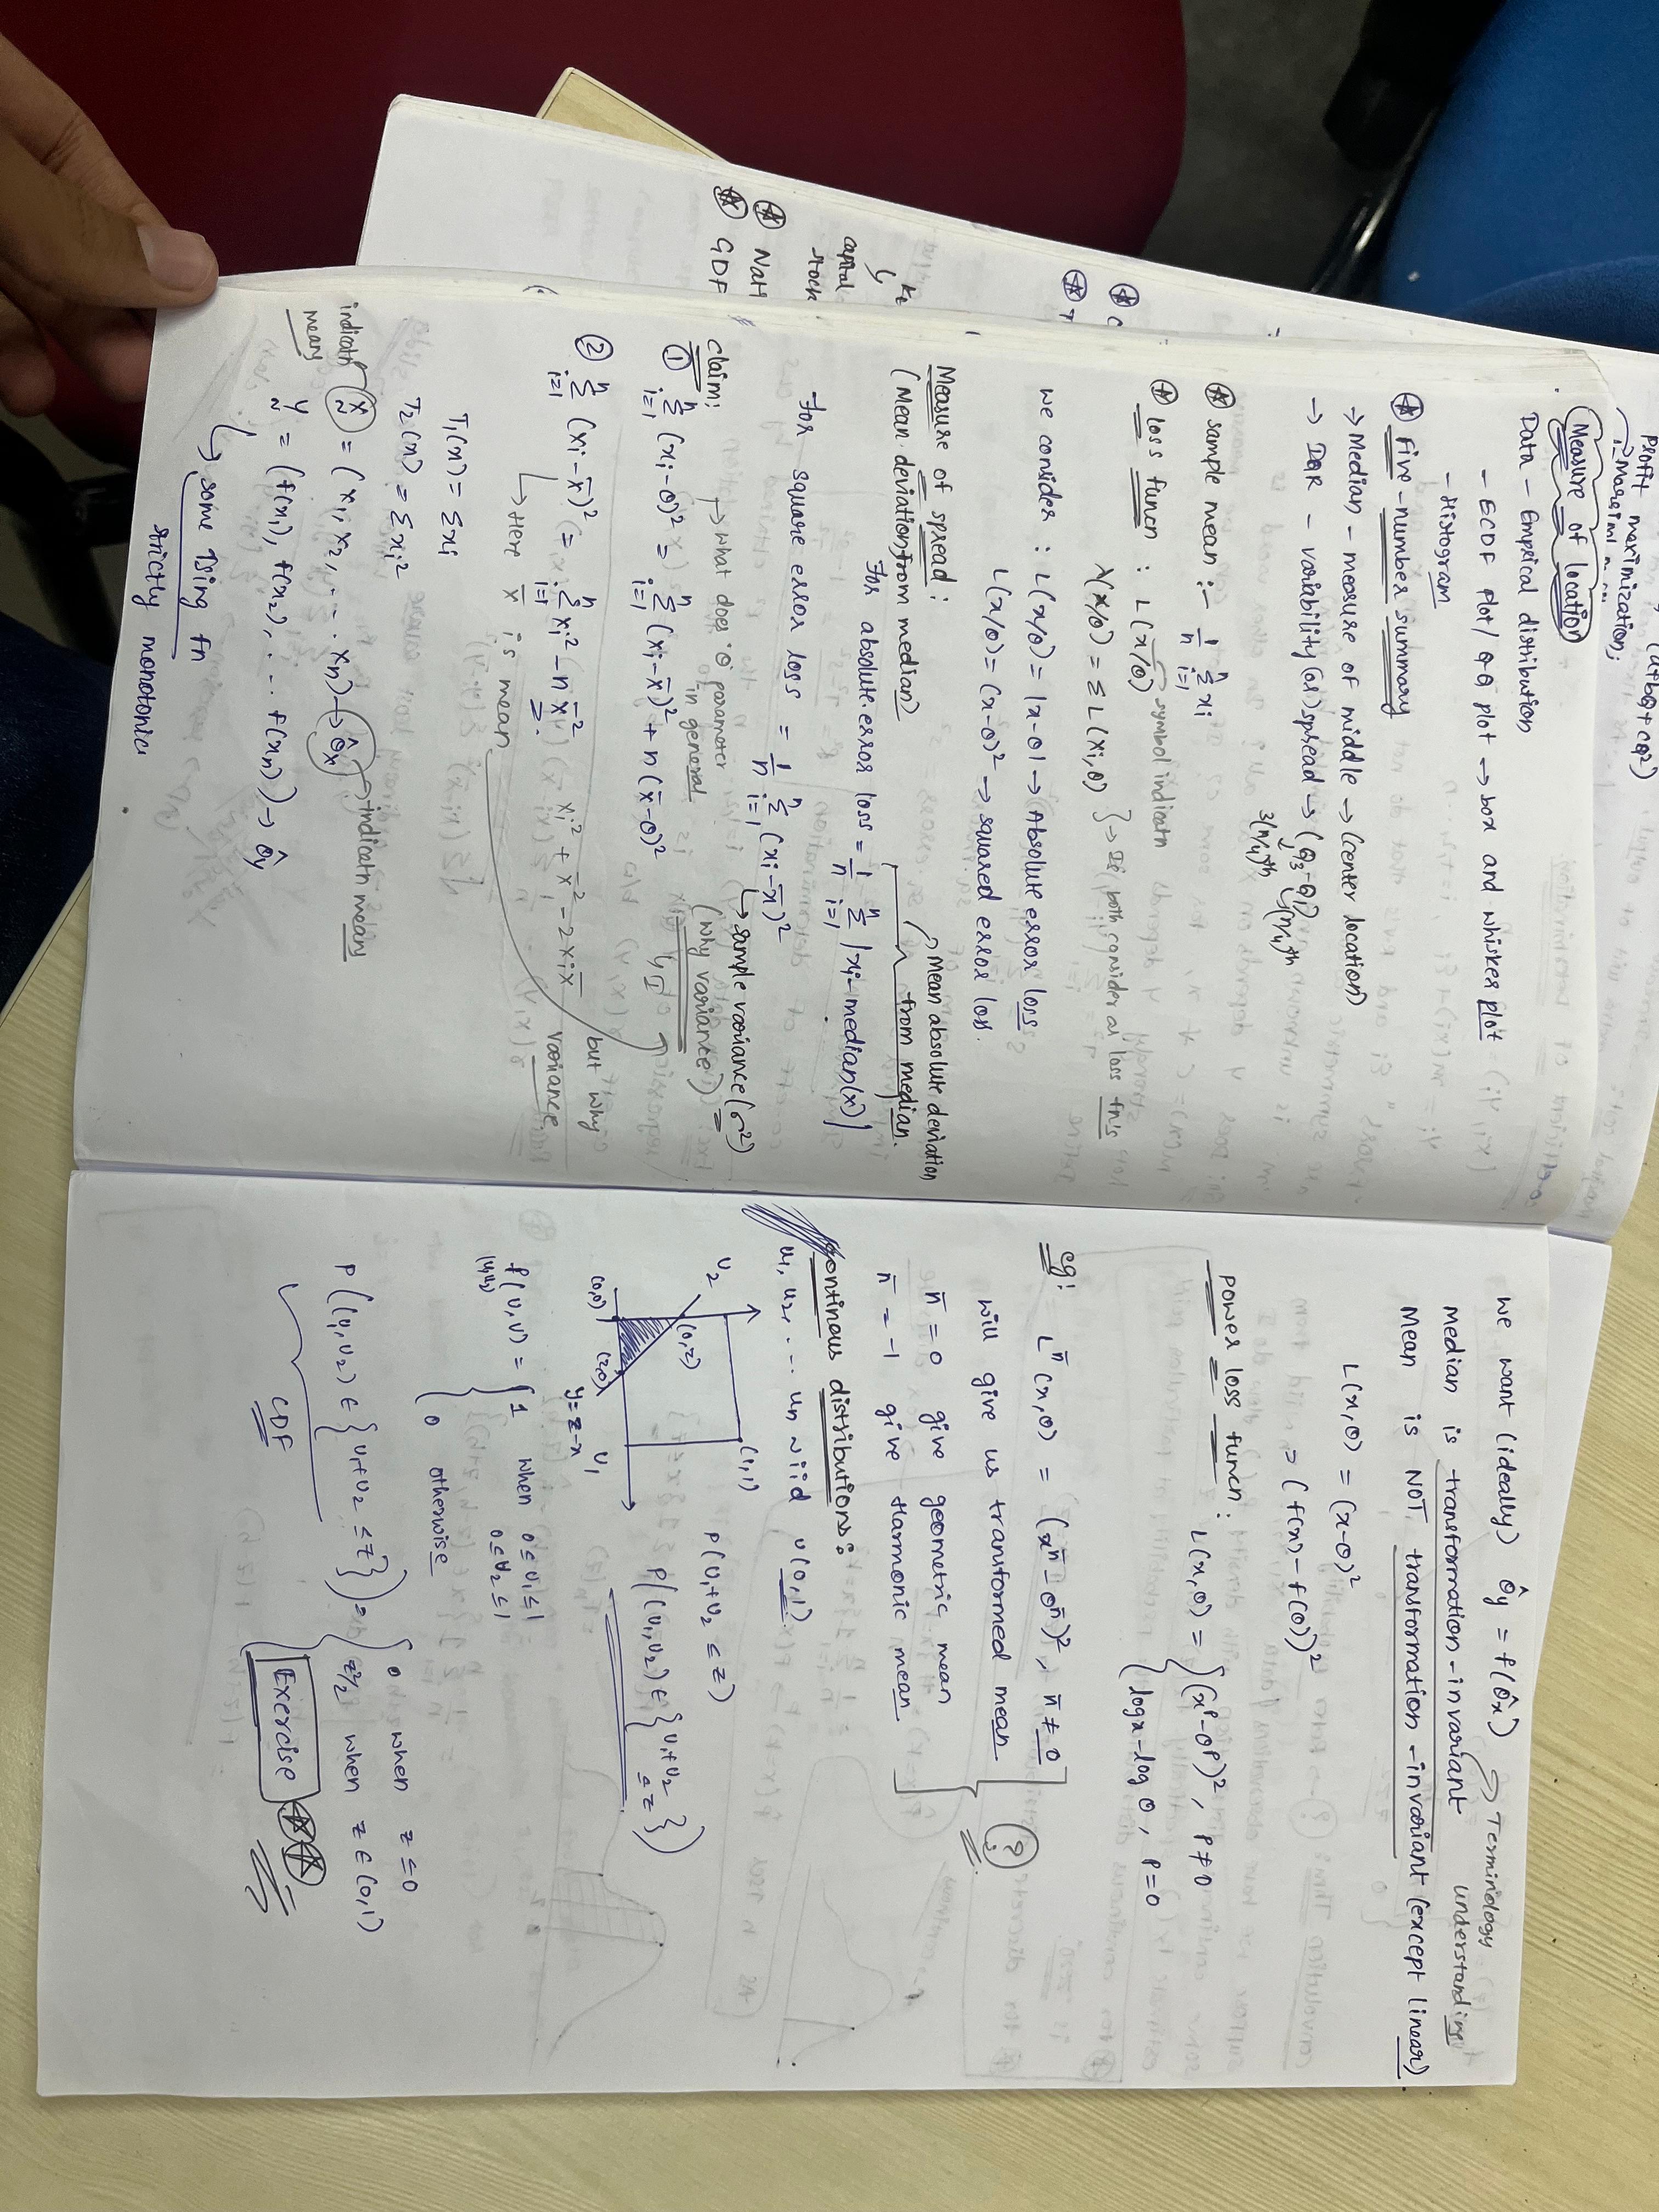 (a+bQ+cQ²)
Profit maximization;
Measure of location
Data – Emprical distribution
– ECDF Plot/ QQ plot → box and whisker plot
– Histogram
Five-number summary
→ Median – measure of middle → (center location)
→ IQR – variability (or) spread → (Q₃-Q₁)
3(n/4)th (n/4)th
sample mean :- 1/n Σ_{i=1}^{n} xi
Loss funcn : L(x/θ) → symbol indicatn
λ(x/θ) = Σ L(xi,θ) } → Is both consider as loss fn's
we consider : L(x/θ) = |x-θ| → Absolute error loss
L(x/θ) = (x-θ)² → squared error loss.
Measure of spread :
(Mean deviation from median)
→ Mean absolute deviation
from median.
For absolute error loss = 1/n Σ_{i=1}^{n} |xi - median(x)|
For square error loss = 1/n Σ_{i=1}^{n} (xi - x̄)²
↳ sample variance (σ²)
(why variance)
claim:
→ what does 'θ' parameter
in general
① Σ_{i=1}^{n} (xi-θ)² = Σ_{i=1}^{n} (xi-x̄)² + n(x̄-θ)²
② Σ_{i=1}^{n} (xi-x̄)² = Σ_{i=1}^{n} xi² - n x̄² xi² + x̄² - 2xix̄
but why
variance
↳ Here x̄ is mean
T₁(x) = Σxi
T₂(x) = Σxi²
indicatn
means
X = (x₁, x₂, .... xn) → θ̂x → indicatn means
Y = (f(x₁), f(x₂), .... f(xn)) → θ̂y
↳ some ↑sing fn
strictly monotonic
K
capital
stock
Nat
GDP
we want (ideally) θ̂y = f(θ̂x)
→ Terminology
understanding
Median is transformation-invariant
Mean is NOT transformation-invariant (except linear)
L(x,θ) = (x-θ)²
= (f(x) - f(θ))²
Power loss funcn :
L(x,θ) = { (x^p - θ^p)², p ≠ 0
log x - log θ, p = 0
eg:
L^n̄ (x,θ) = (x^n̄ - θ^n̄)², n̄ ≠ 0
will give us transformed mean
?
n̄ = 0 give geometric mean
n̄ = -1 give Harmonic mean
Continous distributions:
u₁, u₂, .... un ~ iid U(0,1)
U₂
(1,1)
(0,z)
(0,0)
(z,0)
U₁
y = z-x
P(U₁+U₂ ≤ z)
P((U₁,U₂) ∈ {U₁+U₂ ≤ z})
f(U,V) = { 1 when 0 ≤ U₁ ≤ 1
(U₁,U₂)
0 ≤ U₂ ≤ 1
0 otherwise
P((U₁,U₂) ∈ {U₁+U₂ ≤ z}) = { 0 when z ≤ 0
z²/2 when z ∈ (0,1)
CDF
Exercise